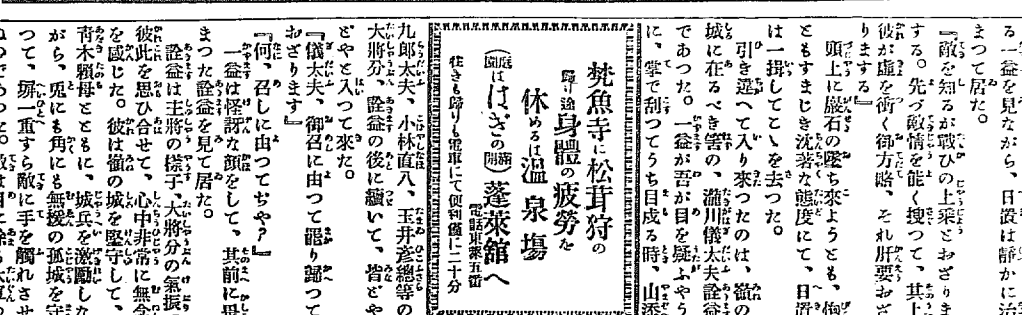 る一益を見ながら、日置は靜かに治
まつて居た。
『敵を知るが戰ひの上乘とおざりま
する。先づ敵情を能く捜つて、其上
彼が虛を衝く御方略、それ肝要おざ
ります』
頭上に巖石の墜ち來ようとも、
ともすまじき沈著な態度にて、日置
は一揖してこゝを去つた。
引き違へて入り來つたのは、嶺の
城に在るべき筈の、瀧川儀太夫詮益
であつた。一益が吾が目を疑ふやう
に、掌で刮つてうち目戍る時、山
梵魚寺に松茸狩の
歸り途身體の疲勞を
休めるは溫泉塲
(庭はぎの滿開)蓬萊館へ
電話東萊五番
往きも歸りも電車にて便利僅に二十分
九郎太夫、小林直八、玉井彦總等の
大將分、詮益の後に續いて、皆どや
どやと入つて來た。
『儀太夫、御召に由つて罷り歸つて
おざります』
『何、召しに由つてぢや？』
一益は怪訝な顏をして、其前に
まつた詮益を見て居た。
詮益は主將の樣子、大將分の氣振
彼此を思ひ合せて、心中非常に無念
を感じた。彼は嶺の城を堅守して、
靑木賴母とともに、城兵を激勵しな
がら、兎にも角にも無援の孤城を守
つて、頭一重すら敵に手を觸れさせ